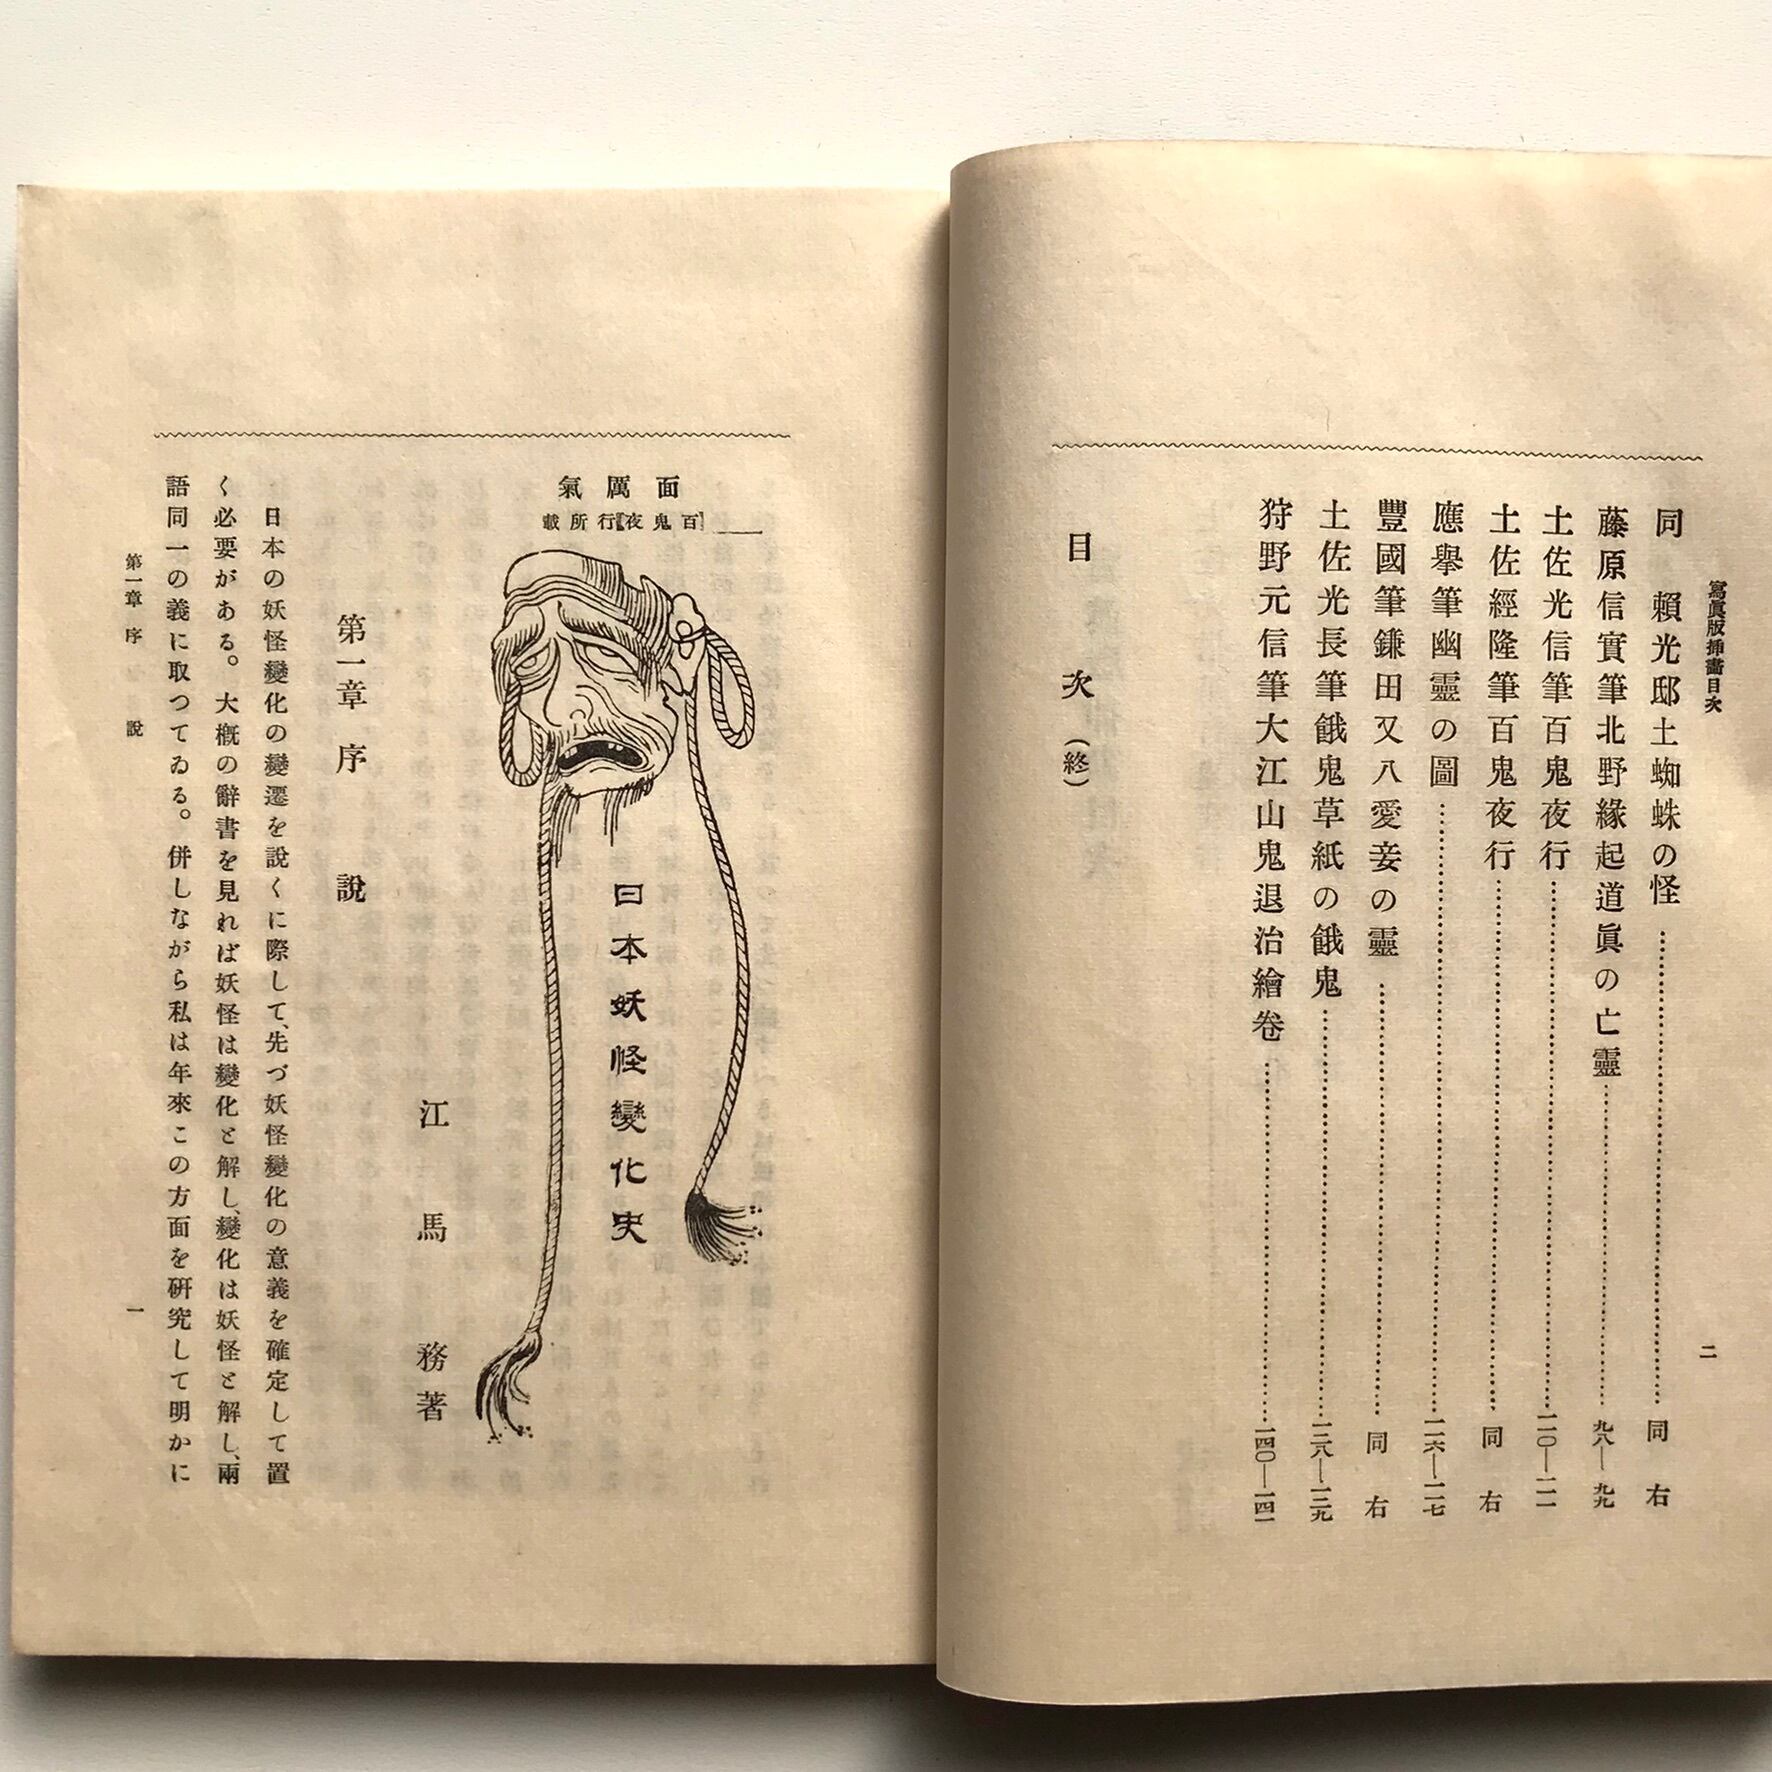 寫眞版挿畵目次
二
同　賴光邸土蜘蛛の怪………同右
藤原信實筆北野緣起道眞の亡靈………九八—九九
土佐光信筆百鬼夜行………一一〇—一一一
土佐經隆筆百鬼夜行………同右
應擧筆幽靈の圖………一一六—一一七
豐國筆鎌田又八愛妾の靈………同右
土佐光長筆餓鬼草紙の餓鬼………一三八—一三九
狩野元信筆大江山鬼退治繪卷………一四〇—一四一
目次（終）
面厲氣
百鬼夜行所載
日本妖怪變化史
江馬務著
第一章　序說
日本の妖怪變化の變遷を說くに際して、先づ妖怪變化の意義を確定して置
く必要がある。大概の辭書を見れば妖怪は變化と解し、變化は妖怪と解し、兩
語同一の義に取つてゐる。併しながら私は年來この方面を硏究して明かに
第一章　序說
一